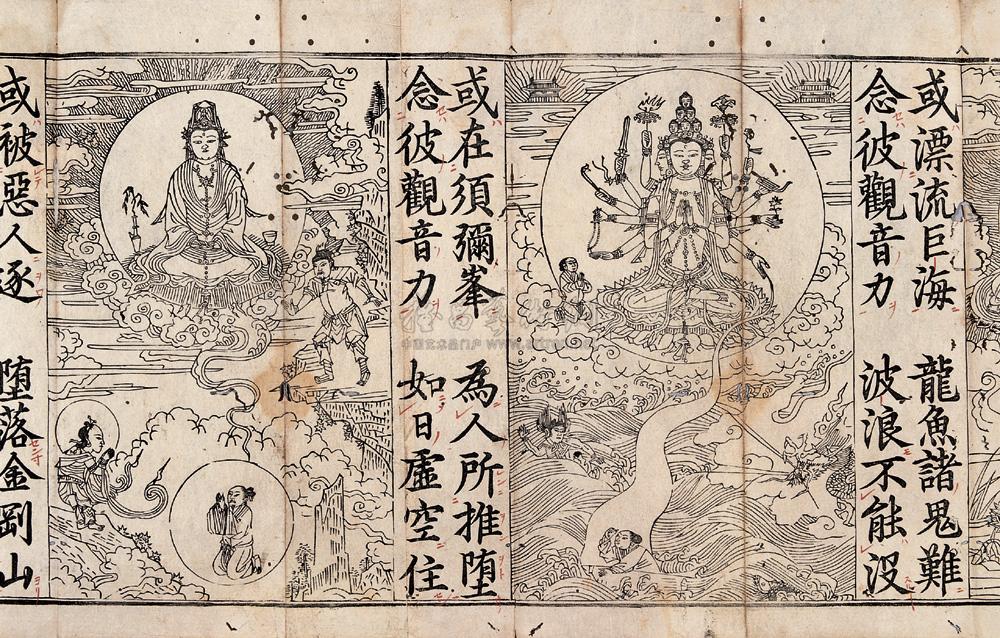 或漂流巨海　龍魚諸鬼難
念彼觀音力　波浪不能没
或在須彌峯　為人所推堕
念彼觀音力　如日虚空住
或被惡人逐　堕落金剛山